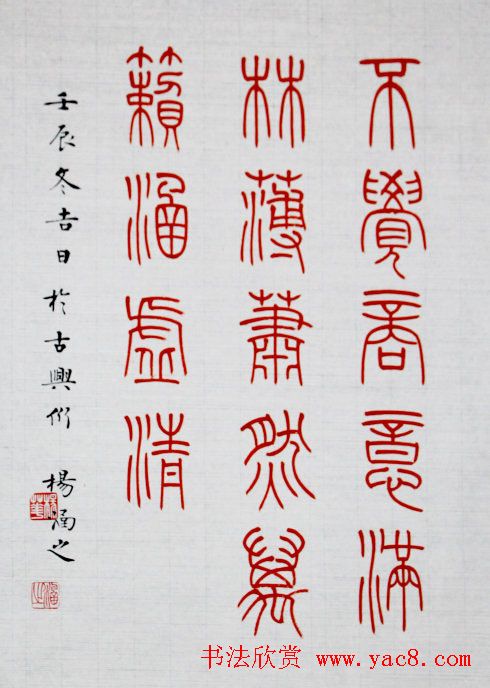 不覺商意滿
林薄蕭然萬
籟涵虛清
壬辰冬吉日於古興州 楊涵之
书法欣赏 www.yac8.com